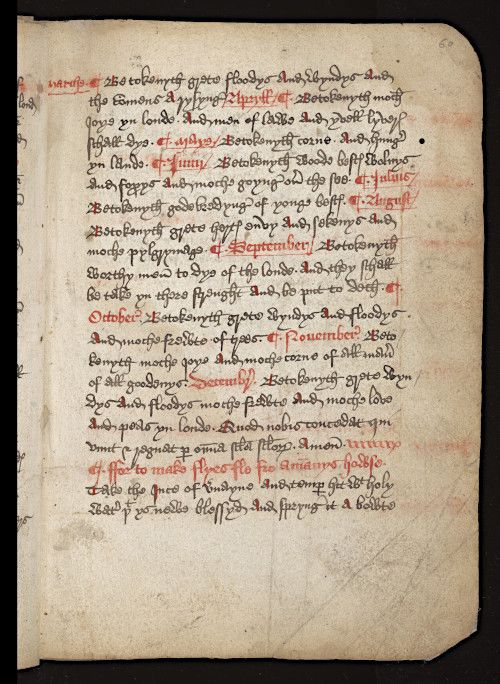 60
marche ¶ Betokenyth grete floodys And Wyndys And
the Comens A rysyng Apryll ¶ Betokenyth moch
Joye yn londe And men of lawe And
schall dye ¶ Maye Betokenyth corne And
yn lande ¶ Junij Betokenyth woode best Wolvys
and foxys And moche goyng ov the see ¶ Julius
Betokenyth gode bredyng of yonge best ¶ August
Betokenyth grete envy And sekenys And
moche pylgrymage ¶ September Betokenyth
Worthy men to dye of the londe And they schall
be take yn there strenght And be put to deth ¶
October Betokenyth grete Wyndys And floodys
And moche frewte of trees ¶ November Beto
kenyth moche Joye And moche corne of all man
of all goodenys December Betokenyth grete Wyn
dys And floodys moche frewte And moche love
And peas yn londe Quod nobis concedat qui
vivit & regnat p omia scla sclor Amen
¶ ffor to make flyes flo fro A mannys howse
Take the Juce of Vvayne And temp hit Wt holy
Wat yt ys newe blessyd And spryng it A bowte